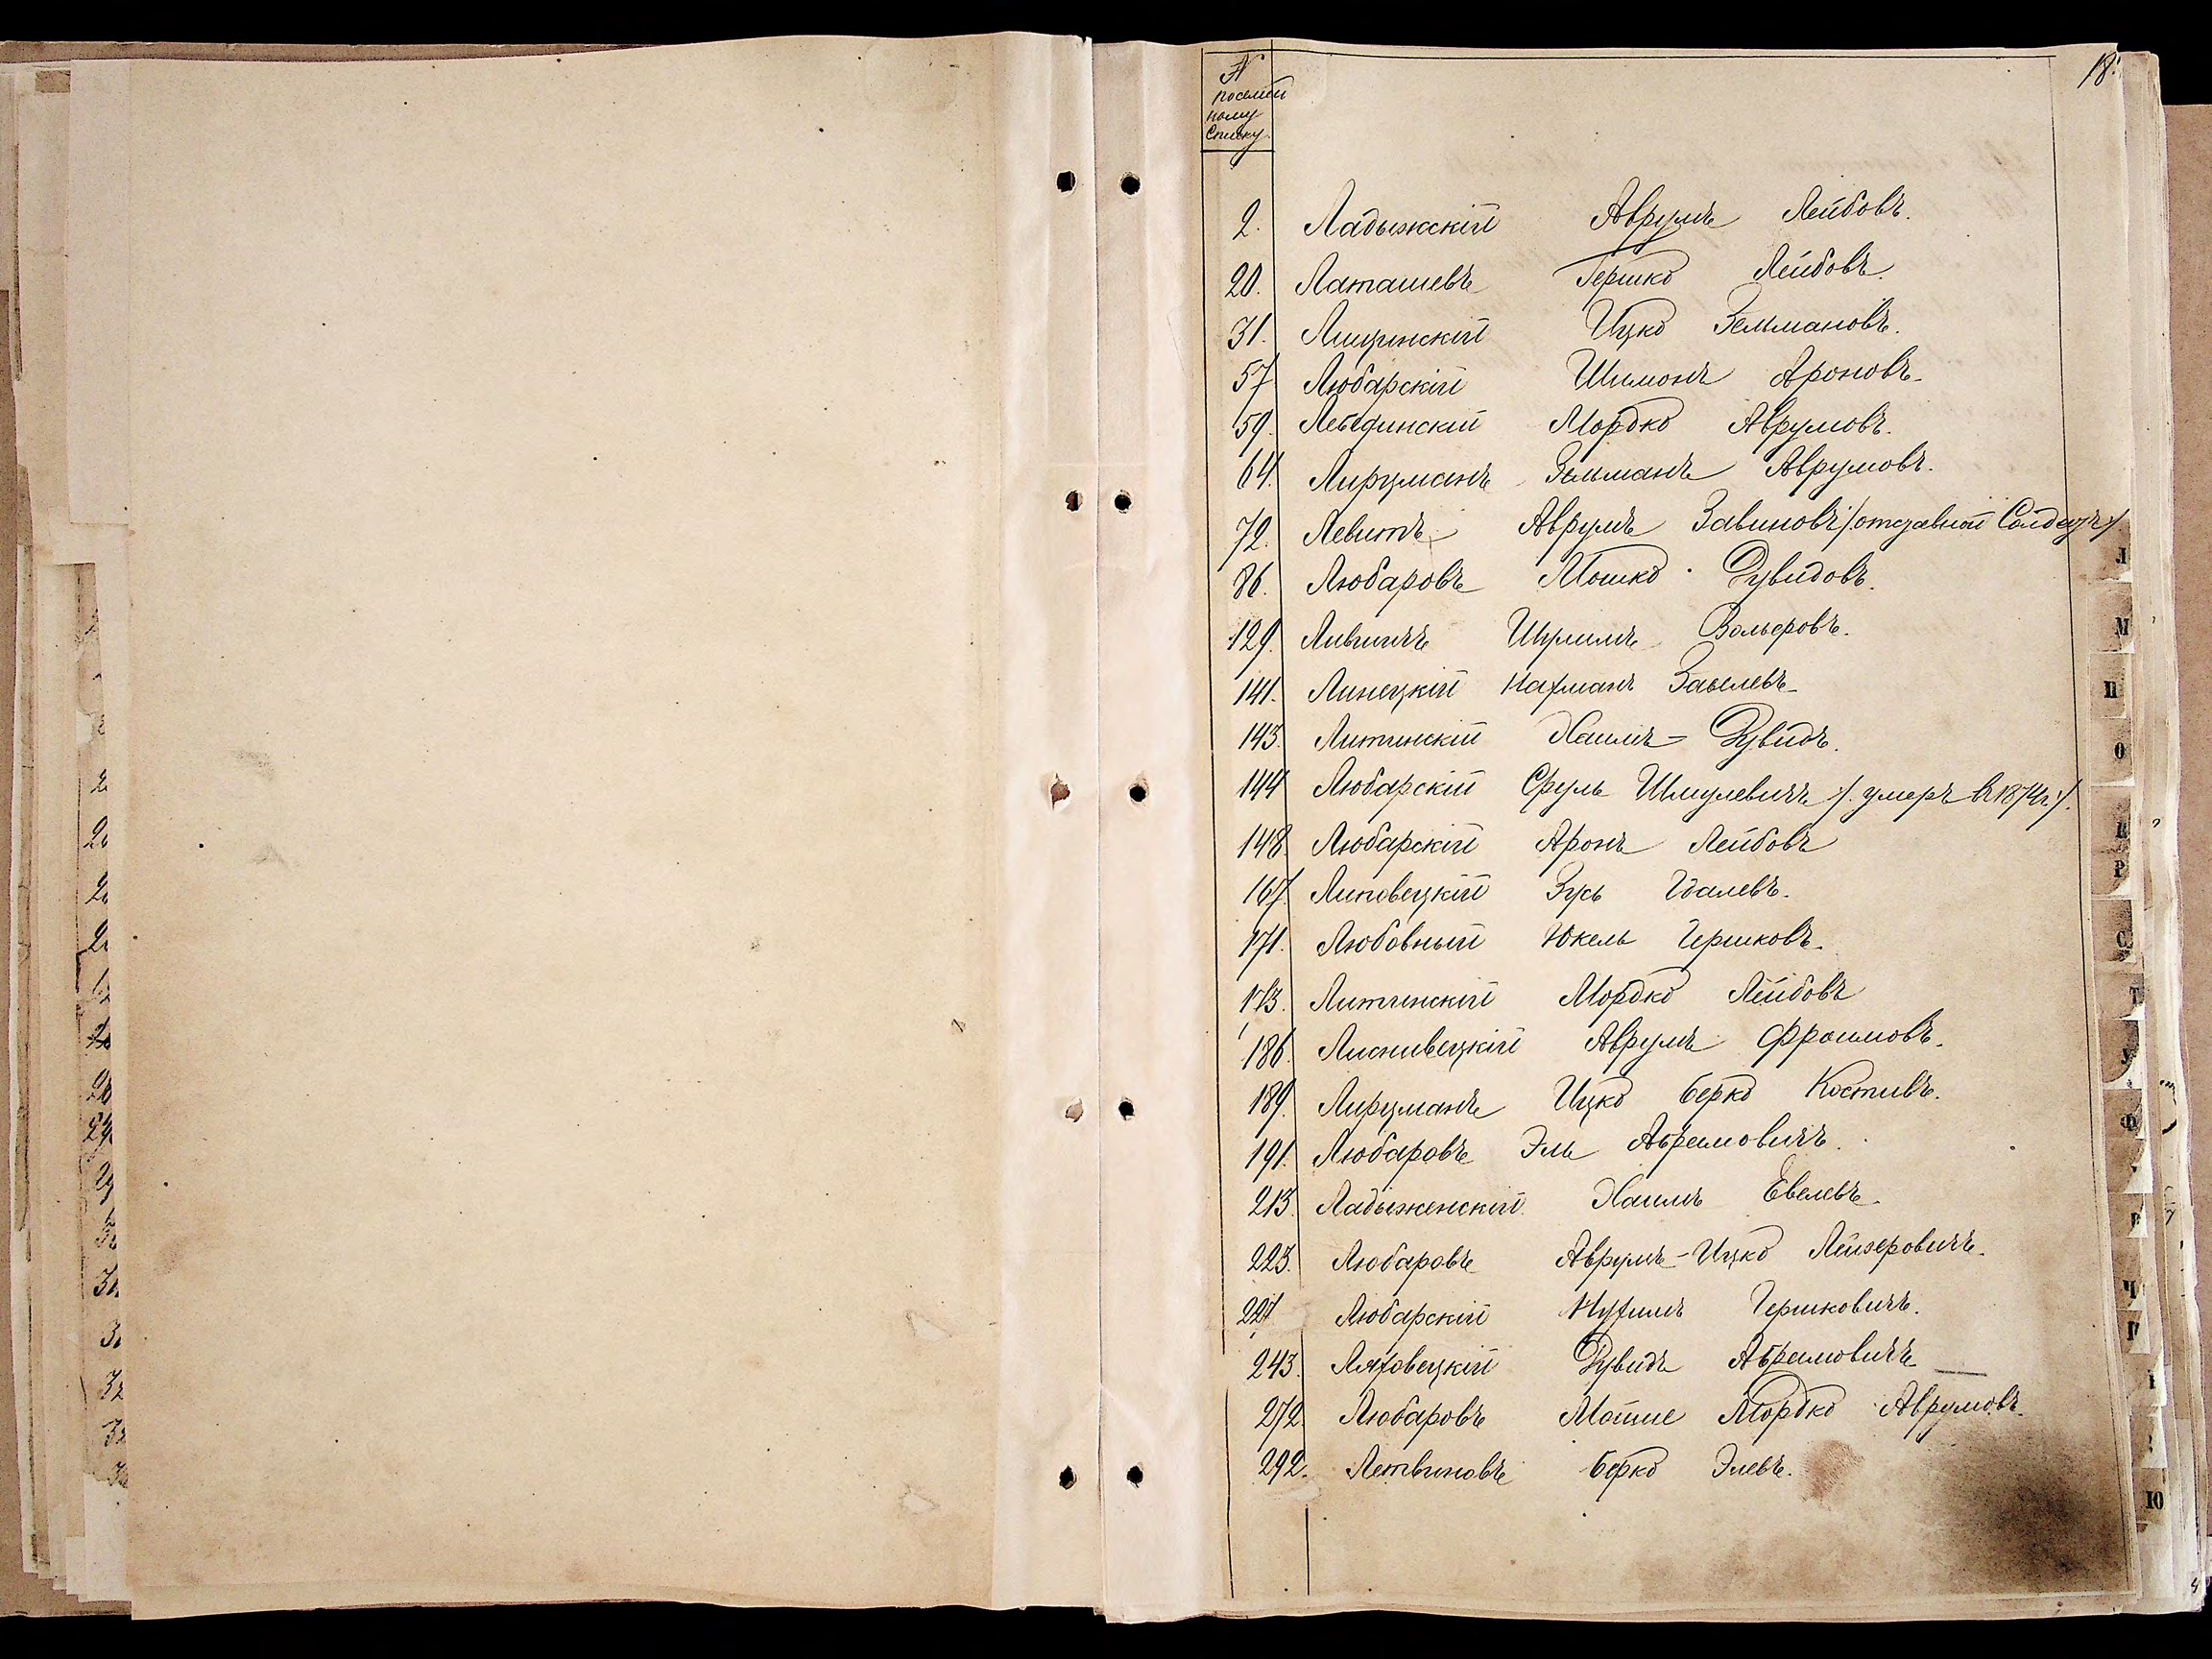 18.
№
посемей
ному
списку
2. Ладыжскій Аврумъ Лейбовъ.
20. Латашевъ Гершко Лейбовъ.
31. Лищинскій Ицко Зельмановъ.
57 Любарскій Шимонъ Ароновъ.
59. Лебединскій Мордко Аврумовъ.
64. Лирцманъ Зельманъ Аврумовъ.
72. Левитъ Аврумъ Завиновъ /:отставной Солдатъ:/
86. Любаровъ Мошко Дувидовъ.
129. Лившичъ Шулимъ Вольфовъ.
141. Линецкій Нахманъ Заселевъ.
143. Литинскій Хаимъ-Дувидъ.
144 Любарскій Сруль Шмулевичъ /:умеръ въ 1874г:/.
148 Любарскій Аронъ Лейбовъ
167. Липовецкій Зусь Идалевъ.
171. Любовный Юкель Гершковъ.
173. Литинскій Мордко Лейбовъ
186. Лиснивецкій Аврумъ Фроимовъ.
189. Лирцманъ Ицко Берко Костивъ.
191. Любаровъ Эль Абрамовичъ.
213. Ладыженскій Хаимъ Евелевъ.
223. Любаровъ Аврумъ-Ицко Лейзеровичъ.
227. Любарскій Нухимъ Гершковичъ.
243. Ляховецкій Дувидъ Абрамовичъ
272. Любаровъ Мошие Мордко Аврумовъ
292. Летвиновъ Берко Элевъ.
Л
М
П
О
Р
С
Т
У
Ф
Ч
Ю